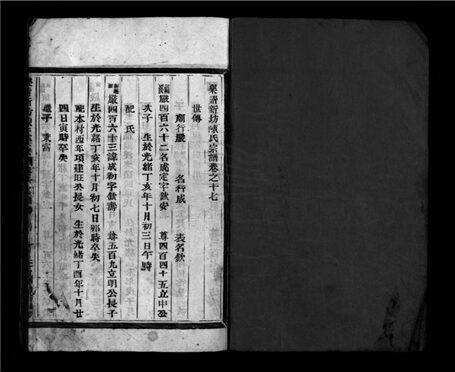 樂清新坊陳氏宗譜卷之十七
世傳
廟行嚴 名行成 表名欽
嚴四百六十二名成定字欽安 尊四百四十五立中公
次子 生於光緒丁亥年十月初三日午時
配 氏
嚴四百六十三諱成初字欽壽 尊五百九立明公長子
生於光緒丁亥年十月初七日卯時卒失
配本村西年項建旺公長女 生於光緒丁酉年十月廿
四日寅時卒失
繼子 東富